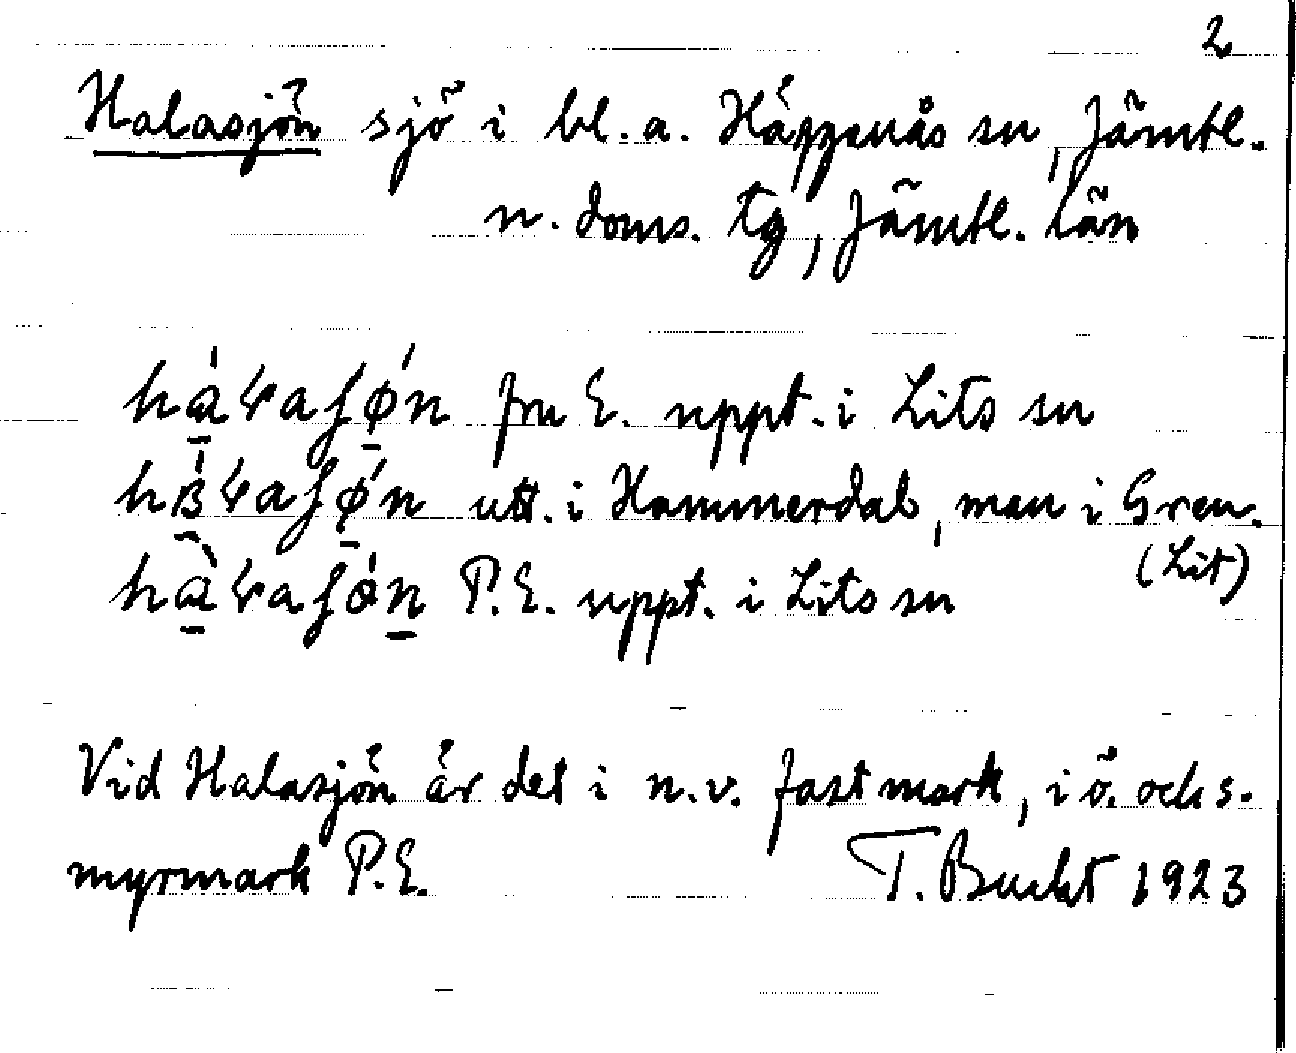 2
Halasjön sjö i bl. a. Häggenås sn, Jämtl.
n. doms. tg, Jämtl. län
fru E. uppt. i Lits sn
utt. i Hammerdal, men i Gren.
(Lit)
P.E. uppt. i Lits sn
Vid Halasjön är det i n.v. fast mark, i ö. och s.
myrmark P.E. T. Bucht 1923